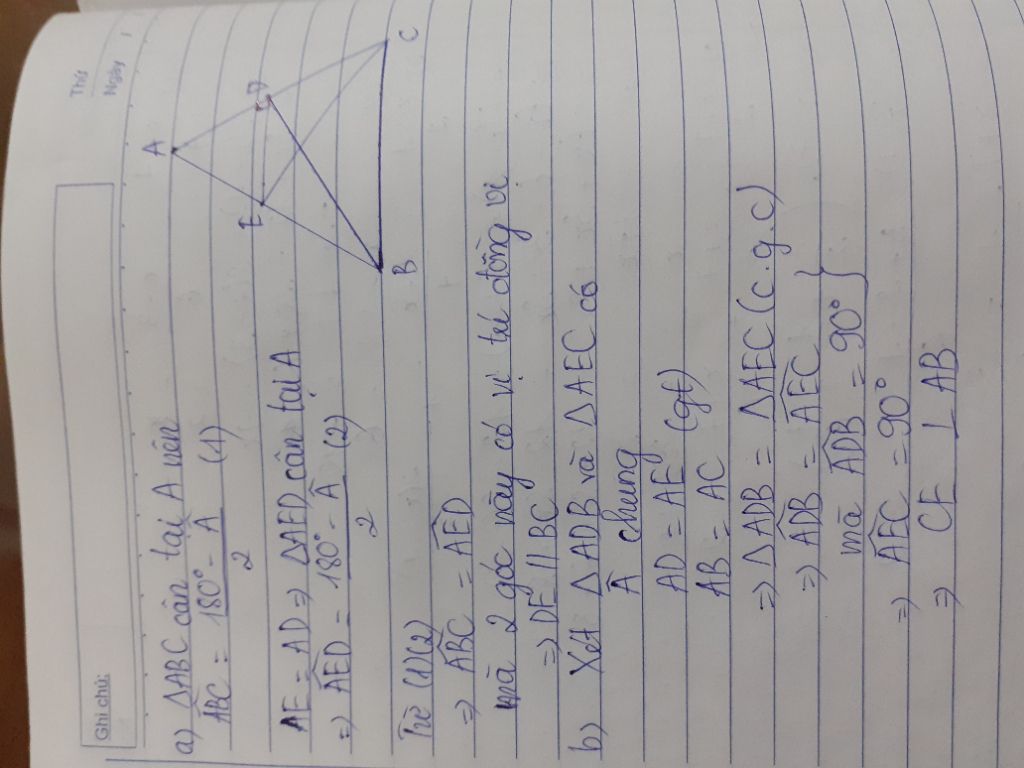 Ghi chú:
Thứ
Ngày
a) ΔABC cân tại A nên
ABC = 180° - A (1)
2
A
E
D
B
C
AE = AD ⇒ ΔAED cân tại A
⇒ AED = 180° - A (2)
2
Từ (1)(2)
⇒ ABC = AED
mà 2 góc này có vị trí đồng vị
⇒ DE // BC
b) Xét ΔADB và ΔAEC có
A chung
AD = AE (gt)
AB = AC
⇒ ΔADB = ΔAEC (c.g.c)
⇒ ADB = AEC
mà ADB = 90° }
⇒ AEC = 90°
⇒ CE ⊥ AB